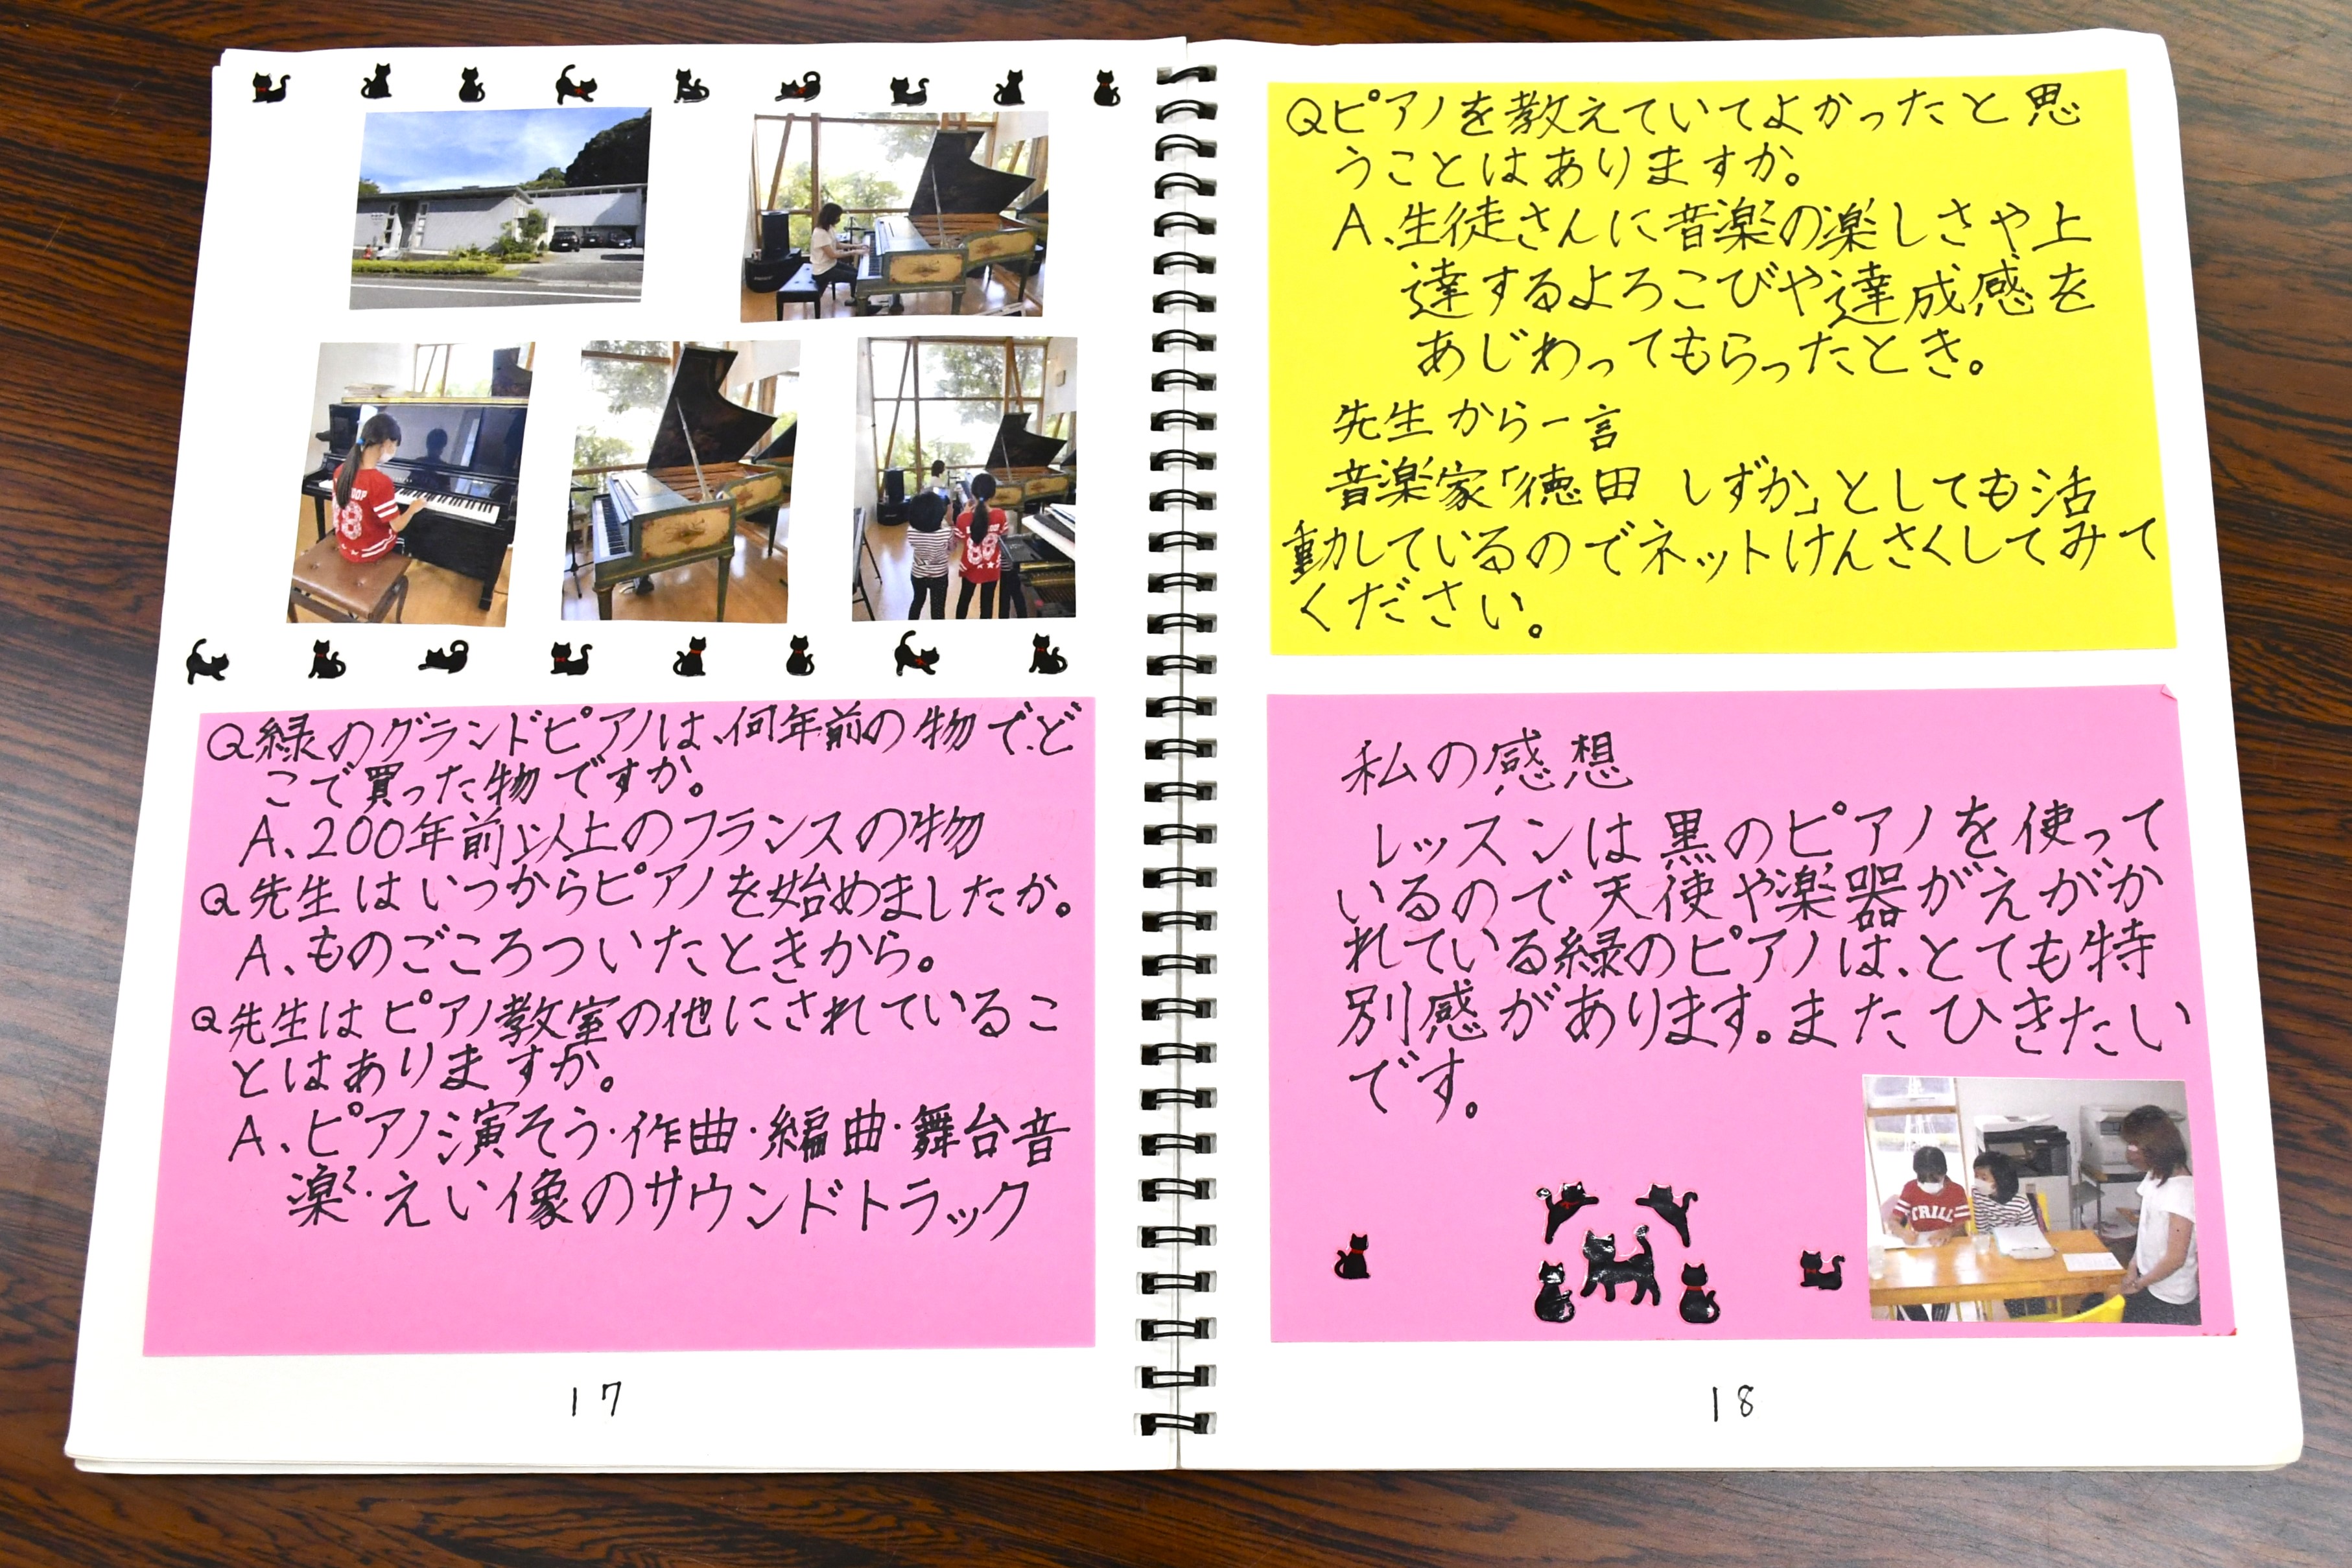 Q緑のグランドピアノは、何年前の物で、ど
こで買った物ですか。
A、200年前以上のフランスの物
Q先生はいつからピアノを始めましたか。
A、ものごころついたときから。
Q先生はピアノ教室の他にされているこ
とはありますか。
A、ピアノ演そう・作曲・編曲・舞台音
楽・えい像のサウンドトラック
17
Qピアノを教えていてよかったと思
うことはありますか。
A、生徒さんに音楽の楽しさや上
達するよろこびや達成感を
あじわってもらったとき。
先生から一言
音楽家「徳田 しずか」としても活
動しているのでネットけんさくしてみて
ください。
私の感想
レッスンは黒のピアノを使って
いるので天使や楽器がえがか
れている緑のピアノは、とても特
別感があります。またひきたい
です。
TRILL
18